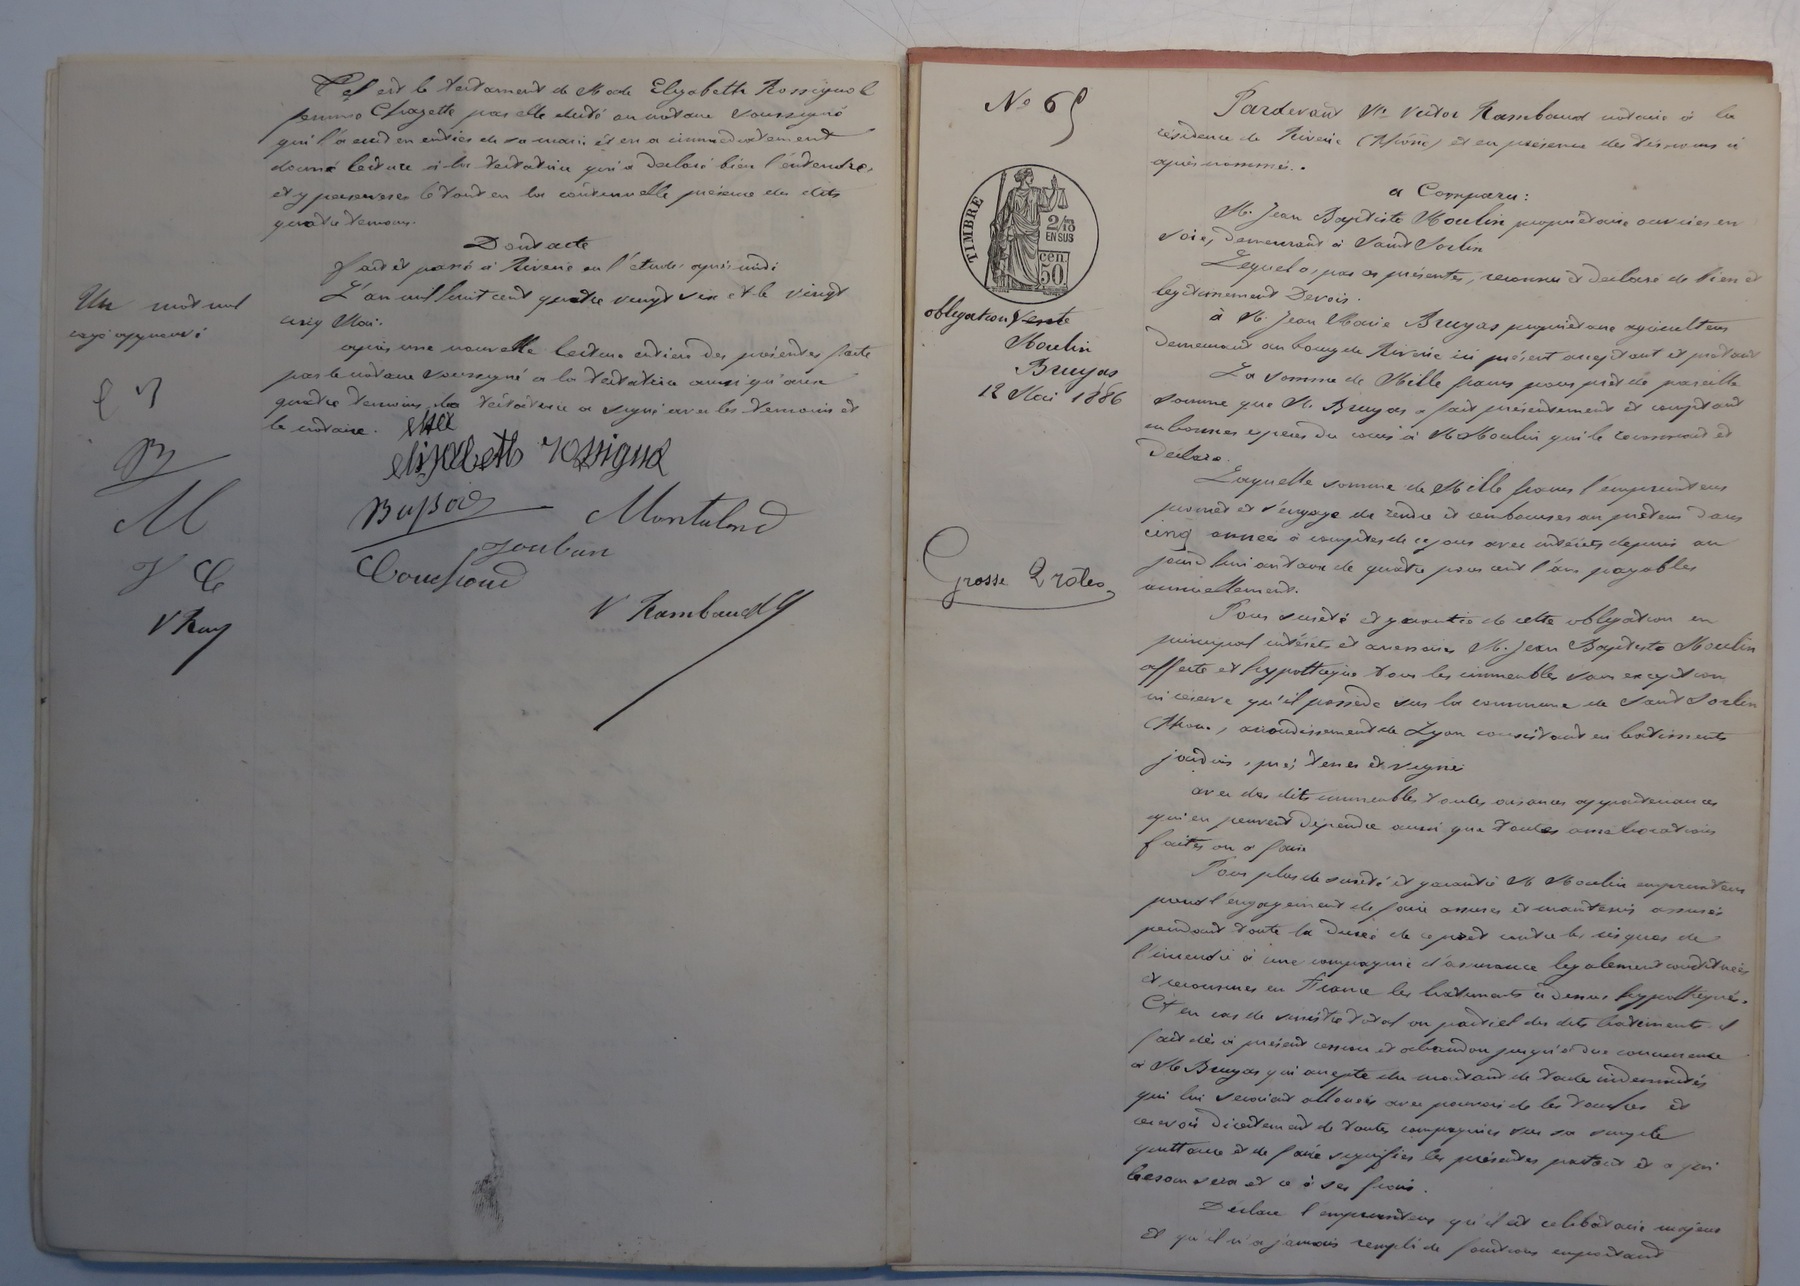 Tel est le testament de Made Elizabeth Rossignol
femme Chazette par elle dicté au notaire soussigné
qui l'a écrit en entier de sa main et en a immédiatement
donné lecture à la testatrice qui a déclaré bien l'entendre
et y perseverer le tout en la continuelle présence des dits
quatre temoins.
Dont acte
fait et passé à Riverie en l'étude, après midi
L'an mil huit cent quatre vingt six et le vingt
cinq Mai.
après une nouvelle lecture entiere des présentes faite
par le notaire soussigné à la testatrice ainsi qu'aux
quatre temoins, la testatrice a signé avec les temoins et
le notaire.
Un mot nul
rayé approuvé
E R
B
M
J C
V Ram
elizabeth rossignol
Montaland
Joubin
V Rambaud
No 65
TIMBRE
2/10
EN SUS
cen.
50
obligation Vente
Moulin
Bruyas
12 Mai 1886
Grosse 2 rôles
Pardevant Me Victor Rambaud notaire à la
résidence de Riverie (Rhône) et en présence des témoins ci
après nommés.
a Comparu:
M. Jean Baptiste Moulin propriétaire ouvrier en
soie, demeurant à Saint Sorlin
Lequel a, par ces présentes, reconnu et déclaré de bien et
legitimement Devoir.
à M. Jean Marie Bruyas propriétaire agriculteur
demeurant au bourg de Riverie ici présent acceptant et prêtant
La somme de Mille francs pour prêt de pareille
somme que M. Bruyas a fait présentement et comptant
en bonnes especes du cours à M Moulin qui le reconnait et
Declare.
Laquelle somme de Mille francs l'emprunteur
promet et s'engage de rendre et rembourser au prêteur dans
cinq années à compter de ce jour avec intérêts depuis au
jourd'hui au taux de quatre pour cent l'an payables
annuellement.
Pour sureté et garantie de cette obligation en
principal intérêts et accessoires M. Jean Baptiste Moulin
affecte et hypothèque tous les immeubles sans exception
ni réserve qu'il possède sur la commune de Saint Sorlin
Rhône, arrondissement de Lyon consistant en batiments
jardins, pré, terres et vignes
avec des dits immeubles toutes aisances appartenances
qui en peuvent dépendre aussi que toutes améliorations
faites ou a faire
Pour plus de sureté et garantie M Moulin emprunteur
prend l'engagement de faire assurer et maintenir assurés
pendant toute la durée de ce prêt contre les risques de
l'incendie à une compagnie d'assurance legalement constituée
et reconnue en France les batiments ci dessus hypothèqués.
Et en cas de sinistre total ou partiel des dits batiments il
fait dès à présent cession et abandon jusqu'à due concurrence
à M Bruyas qui accepte du montant de toutes indemnités
qui lui seraient allouées avec pouvoir de les toucher et
recevoir directement de toutes compagnies sur sa simple
quittance et de faire signifier les présentes partout et a qui
besoin sera et ce à ses frais.
Déclare l'emprunteur qu'il est celibataire majeur
Et qu'il n'a jamais rempli de fonctions emportant